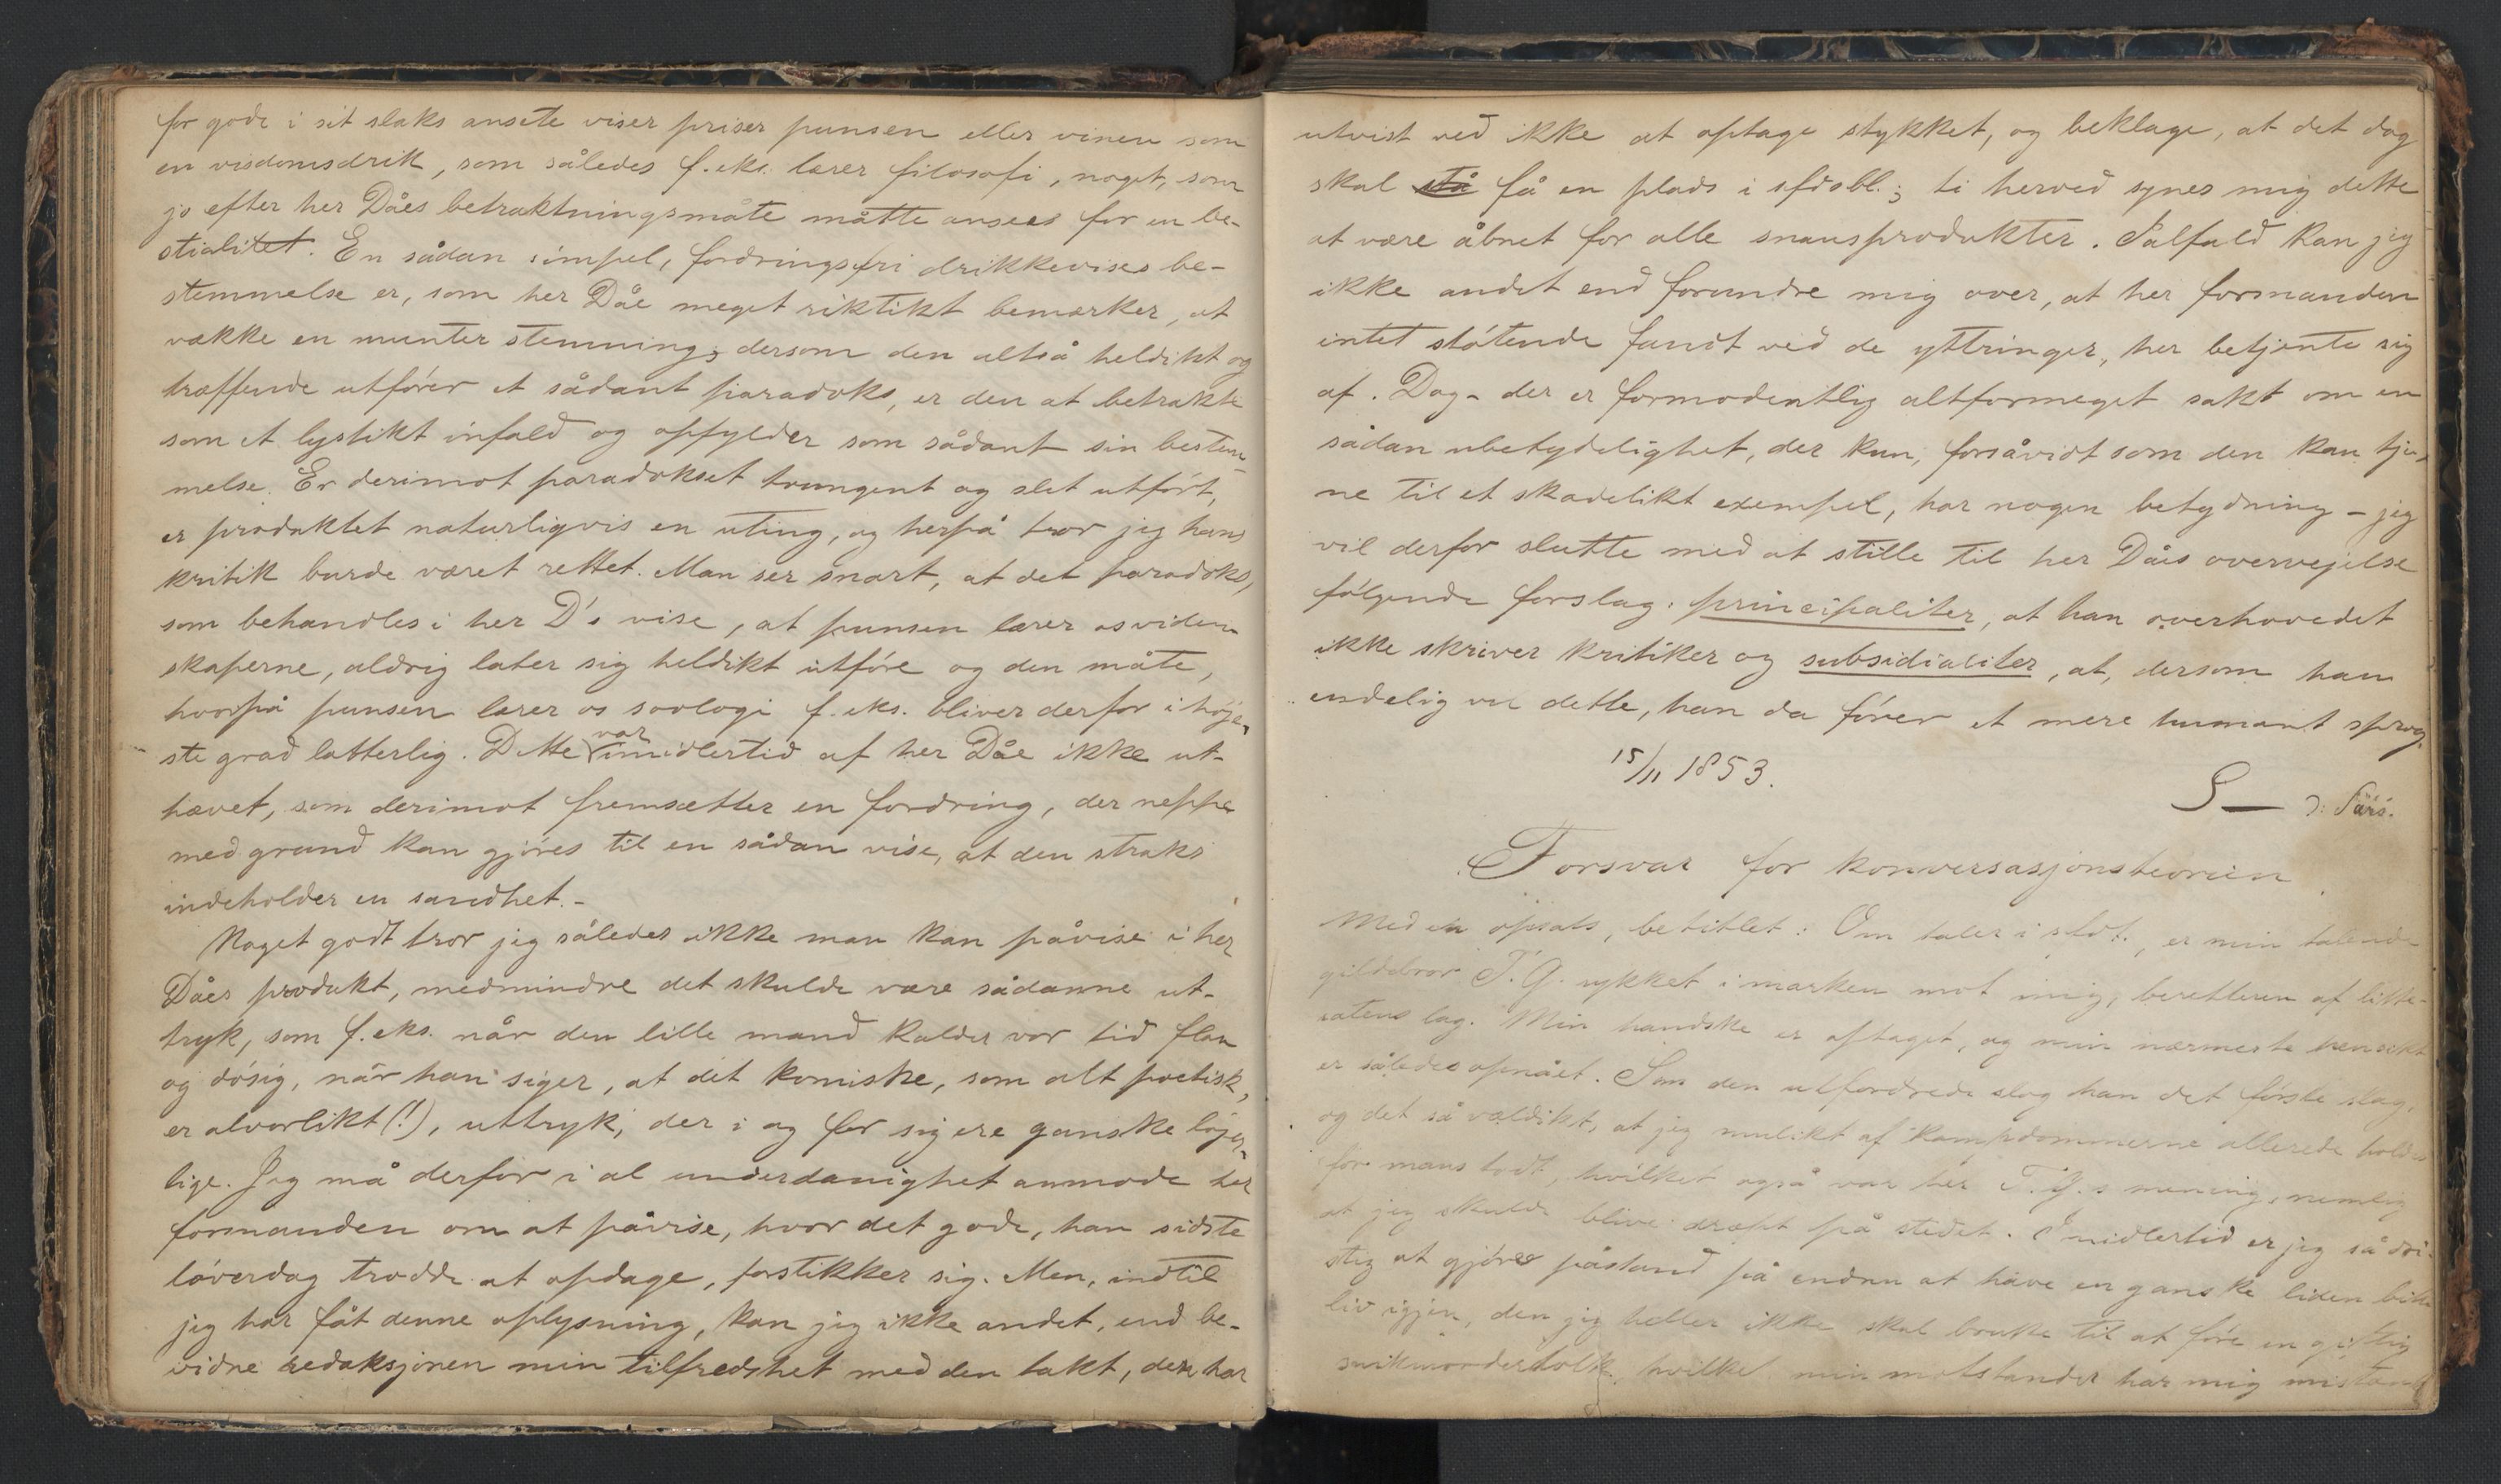 for gode i sit slaks ansete viser priser punsen eller vinen som
en visdomsdrik, som således f. eks. lærer filosofi, noget, som
jo efter her Dåes betraktningsmåte måtte ansees for en be-
stialitet. En sådan simpel, fordringsfri drikkevises be-
stemmelse er, som her Dåe meget riktikt bemærker, at
vække en munter stemning; dersom den altså heldikt og
træffende utfórer et sådant paradoks, er den at betrakte
som et lystikt infald og opfylder som sådant sin bestem-
melse. Er derimot paradokset tvungent og slet utfórt,
er produktet naturligvis en uting, og herpå tror jeg hans
kritik burde været rettet. Man ser snart, at det paradoks,
som behandles i her D's vise, at punsen lærer os viden-
skaperne, aldrig later sig heldikt utfóre og den måte,
hvorpå punsen lærer os soologi f. eks. bliver derfor i hóje-
ste grad latterlig. Dette var imidlertid af her Dåe ikke ut-
hævet, som derimot fremsætter en fordring, der neppe
med grund kan gjóres til en sådan vise, at den straks
indeholder en sandhet. -
Noget godt tror jeg således ikke man kan påvise i her
Dåes produkt, medmindre det skulde være sådanne ut-
tryk, som f. eks. når den lille mand kalder vor tid flau
og dósig, når han siger, at det komiske, som alt poetisk,
er alvorlikt (!), uttryk, der i og for sig ere ganske lójer-
lige. Jeg må derfor i al underdanighet anmode her
formanden om at påvise, hvor det gode, han sidste
lóverdag trodde at opdage, forstikker sig. Men, indtil
jeg har fåt denne oplysning, kan jeg ikke andet, end be-
vidne redaksjonen min tilfredshet med den takt, den har
utvist ved ikke at optage stykket, og beklage, at det dog
skal stå få en plads i sfdsbl.; ti herved synes mig dette
at være åbnet for alle snausprodukter. Ialfald kan jeg
ikke andet end forundre mig over, at her formanden
intet stótende fandt ved de yttringer, her betjente sig
af. Dog - der er formodentlig altformeget sakt om en
sådan ubetydelighet, der kun, forsåvidt som den kan tje-
ne til et skadelikt exempel, har nogen betydning - jeg
vil derfor slutte med at stille til her Dåes overvejelse
fólgende forslag: principaliter, at han overhovedet
ikke skriver kritiker og subsidialiter, at, dersom han
endelig vil dette, han da fórer et mere humant sprog.
15/11 1853.
S— ɔ: Sars.
Forsvar for konversasjonsteorien
Med en opsats, betitlet: Om taler i stdt., er min talende
gildebror T. G. rykket i marken mot mig, beretteren af litte-
ratens lag. Min handske er optaget, og min nærmeste hensikt
er således opnået. Som den utfordrede slog han det fórste slag,
og det så vældikt, at jeg mulikt af kampdommerne allerede holdes
for mans todt, hvilket også var her T. G.s mening, nemlig
at jeg skulde blive dræpt på stedet. Imidlertid er jeg så dri-
stig at gjóre påstand på endnu at have en ganske liden bite
liv igjen, den jeg heller ikke skal bruke til at fóre en giftig
snikmorderdolk, hvilket min motstander har mig mistænkt